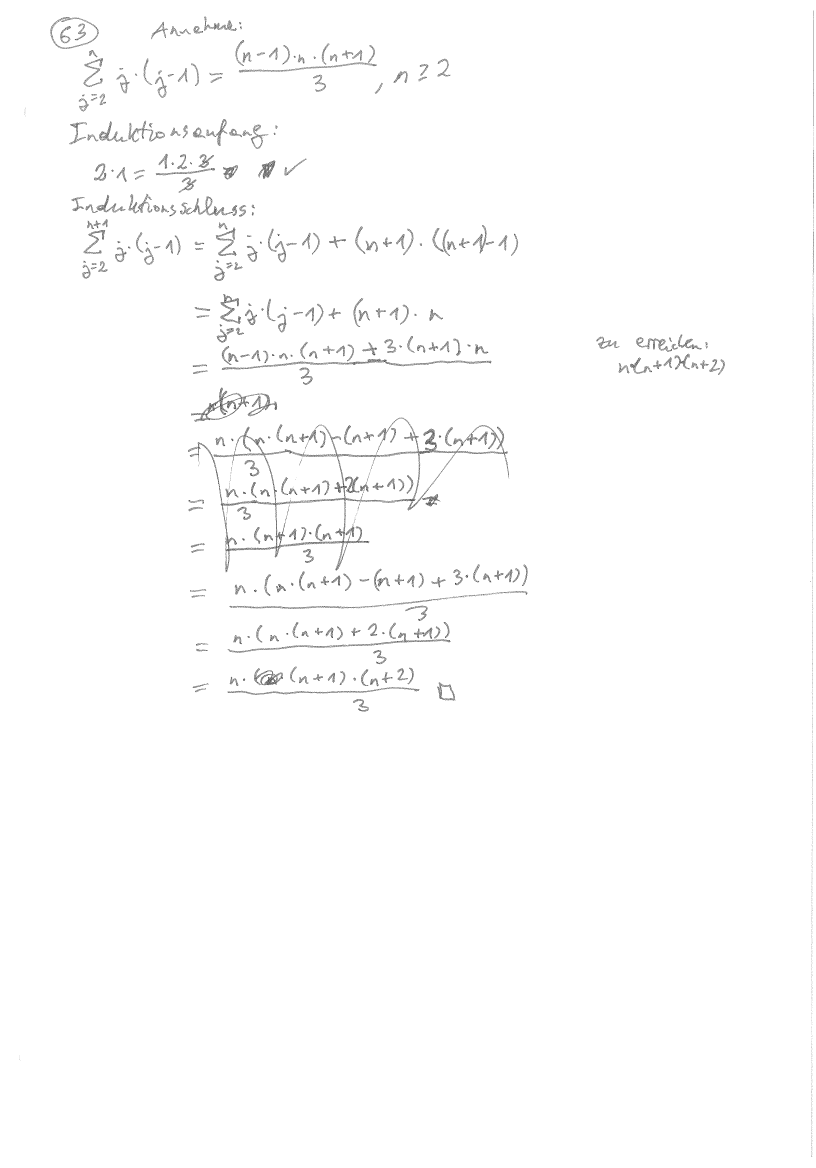 63 Annehme:
\sum_{j=2}^{n} j·(j-1) = \frac{(n-1)·n·(n+1)}{3}, n ≥ 2
Induktionsanfang:
2·1 = \frac{1·2·3}{3} ✓
Induktionsschluss:
\sum_{j=2}^{n+1} j·(j-1) = \sum_{j=2}^{n} j·(j-1) + (n+1)·((n+1)-1)
= \sum_{j=2}^{n} j·(j-1) + (n+1)·n
= \frac{(n-1)·n·(n+1) + 3·(n+1)·n}{3}
zu erreichen:
n·(n+1)·(n+2)
= \frac{n·(n·(n+1)-(n+1)+3·(n+1))}{3}
= \frac{n·(n·(n+1)+2(n+1))}{3}
= \frac{n·(n+1)·(n+1)}{3}
= \frac{n·(n·(n+1)-(n+1)+3·(n+1))}{3}
= \frac{n·(n·(n+1)+2·(n+1))}{3}
= \frac{n·(n+1)·(n+2)}{3} □